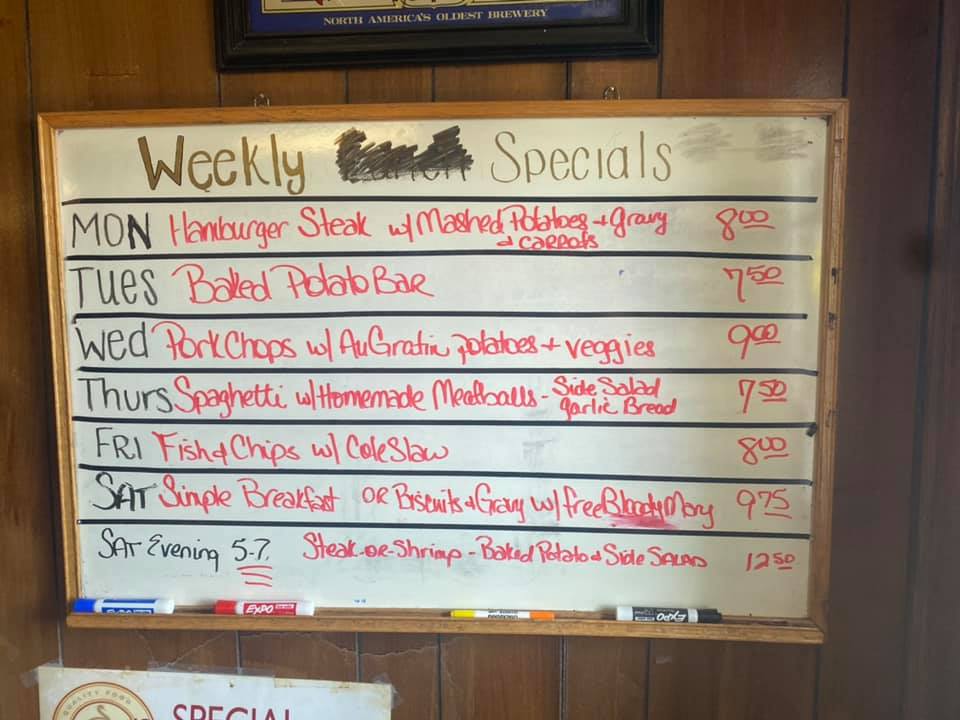 NORTH AMERICA'S OLDEST BREWERY
Weekly Specials
MON Hamburger Steak w/ Mashed Potatoes + gravy 8.00
& CARROTS
TUES Baked Potato Bar 7.50
Wed Pork Chops w/ AuGratin potatoes + veggies 9.00
Thurs Spaghetti w/ Homemade Meatballs - Side Salad 7.50
garlic Bread
FRI Fish & Chips w/ Cole Slaw 8.00
SAT Simple Breakfast OR Biscuits & Gravy w/ free Bloody Mary 9.75
SAT Evening 5-7. Steak-or-Shrimp - Baked Potato & Side SALAD 12.50
EXPO
EXPO
QUALITY FOOD
SPECIAL